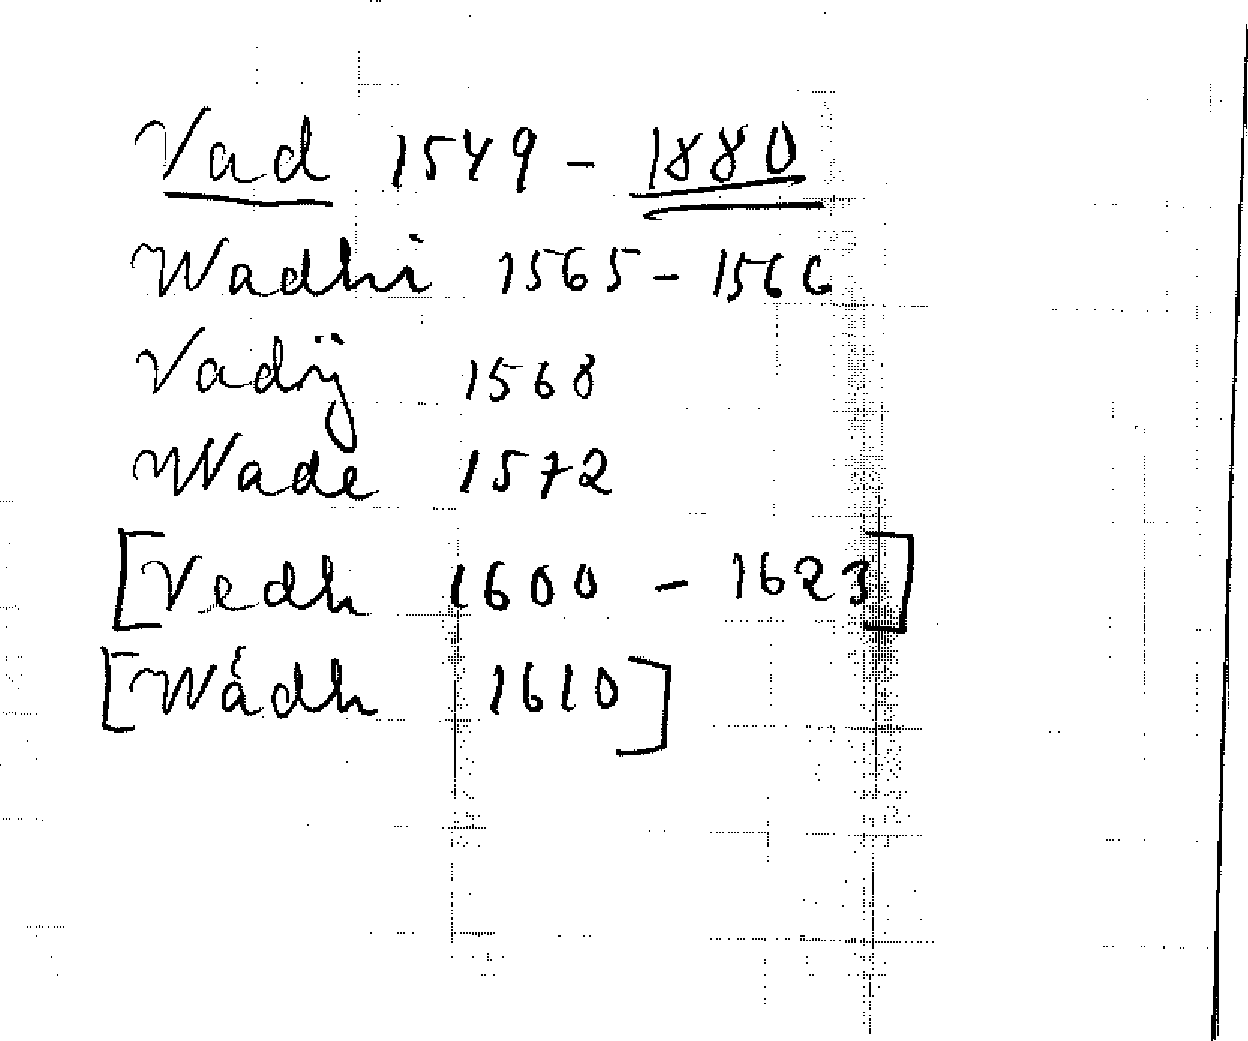 Vad 1549 - 1880
Wadhi 1565 - 1566
Vadij 1568
Wade 1572
[Vedh 1600 - 1623]
[Wådh 1610]